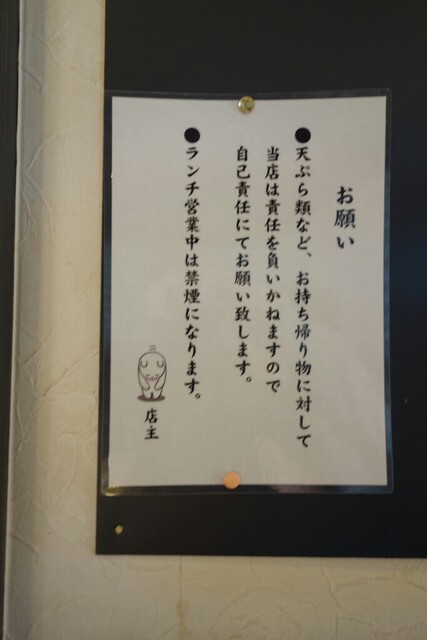 お願い
●天ぷら類など、お持ち帰り物に対して
当店は責任を負いかねますので
自己責任にてお願い致します。
●ランチ営業中は禁煙になります。
店主